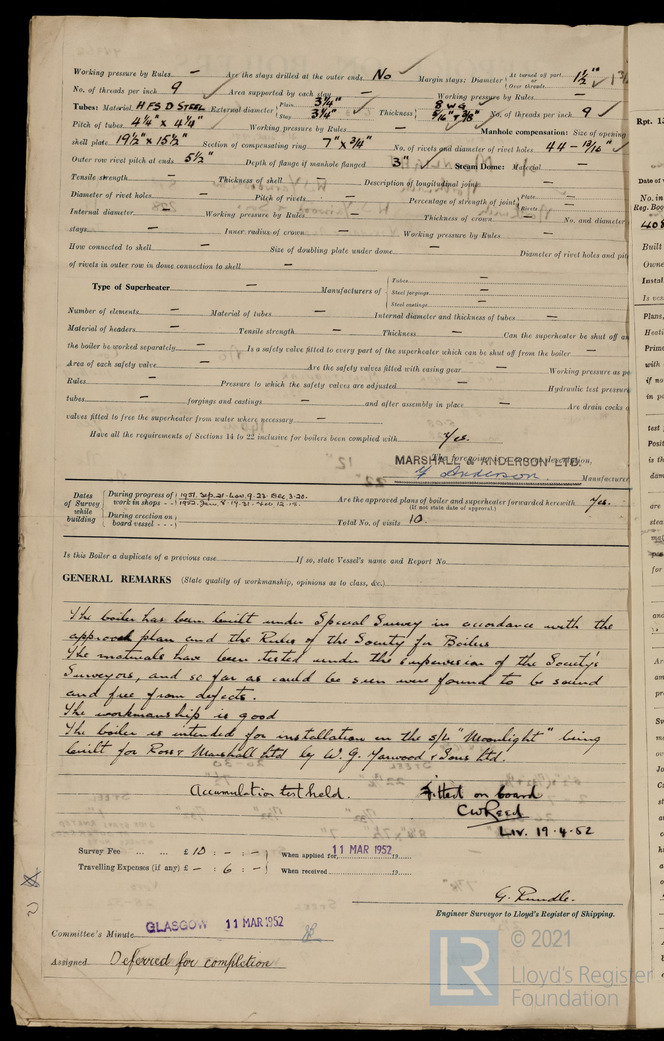 Working pressure by Rules — Are the stays drilled at the outer ends No Margin stays: Diameter { At turned off part, or Over threads. 1½"
No. of threads per inch 9 Area supported by each stay — Working pressure by Rules —
Tubes: Material HFSD STEEL External diameter { Plain 3¼" Stay 3¼" Thickness { 8 WG 5/16" & 3/8" No. of threads per inch 9
Pitch of tubes 4¼" x 4¼" Working pressure by Rules — Manhole compensation: Size of opening
shell plate 19½" x 15½" Section of compensating ring 7" x ¾" No. of rivets and diameter of rivet holes 44 - 13/16"
Outer row rivet pitch at ends 5½" Depth of flange if manhole flanged 3" Steam Dome: Material —
Tensile strength — Thickness of shell — Description of longitudinal joint —
Diameter of rivet holes — Pitch of rivets — Percentage of strength of joint { Plate — Rivets —
Internal diameter — Working pressure by Rules — Thickness of crown — No. and diameter
stays — Inner radius of crown — Working pressure by Rules —
How connected to shell — Size of doubling plate under dome — Diameter of rivet holes and pit
of rivets in outer row in dome connection to shell —
Type of Superheater — Manufacturers of { Tubes — Steel forgings — Steel castings —
Number of elements — Material of tubes — Internal diameter and thickness of tubes —
Material of headers — Tensile strength — Thickness — Can the superheater be shut off an
the boiler be worked separately — Is a safety valve fitted to every part of the superheater which can be shut off from the boiler —
Area of each safety valve — Are the safety valves fitted with easing gear — Working pressure as pe
Rules — Pressure to which the safety valves are adjusted — Hydraulic test pressure
tubes — forgings and castings — and after assembly in place — Are drain cocks o
valves fitted to free the superheater from water where necessary —
Have all the requirements of Sections 14 to 22 inclusive for boilers been complied with Yes.
The foregoing is a correct description,
MARSHALL & ANDERSON LTD.
Anderson Manufacturer
Dates of Survey while building { During progress of work in shops - - 1951. Nov. 9. 23. Dec 3. 20.
During erection on board vessel - - -
Are the approved plans of boiler and superheater forwarded herewith Yes.
(If not state date of approval)
Total No. of visits 10.
Is this Boiler a duplicate of a previous case If so, state Vessel's name and Report No.
GENERAL REMARKS (State quality of workmanship, opinions as to class, &c.)
The boiler has been built under Special Survey in accordance with the
approved plan and the Rules of the Society for Boilers
The materials have been tested under the supervision of the Society's
Surveyors, and so far as could be seen were found to be sound
and free from defects.
The workmanship is good
The boiler is intended for installation in the S/L "Moonlight" being
built for Ross & Marshall Ltd by W. G. Yarwood & Sons Ltd.
Accumulation test held. Fitted on board
CW Reed
LIV. 19.4.52
Survey Fee ... ... £10 : - : - When applied for 11 MAR 1952 19
Travelling Expenses (if any) £ - : 6 : - When received 19
G. Rundle.
Engineer Surveyor to Lloyd's Register of Shipping.
Committee's Minute GLASGOW 11 MAR 1952
Assigned Deferred for completion
© 2021
Lloyd's Register
Foundation
LR
Rpt. 13
Date of
No. in
Reg. Boo
408
Built
Owne
Instal
Is ves
Plans,
Heati
Prime
with
if no
in p